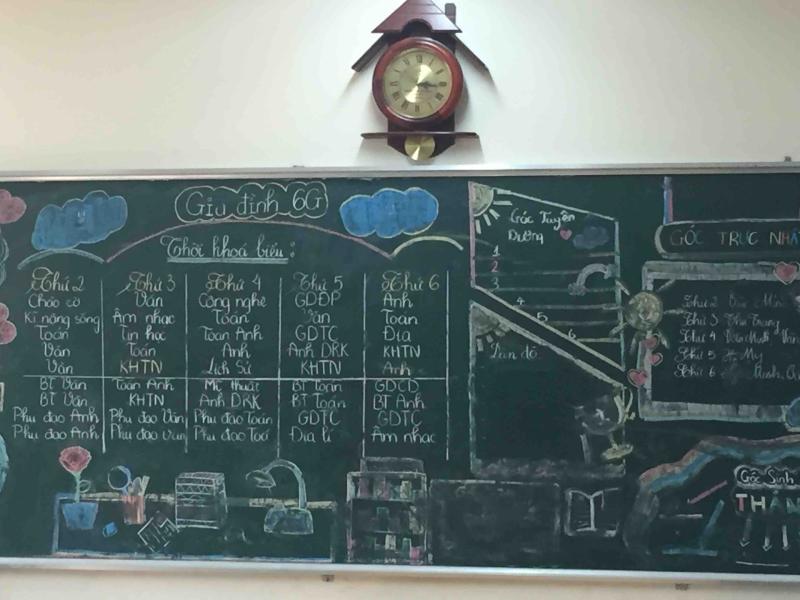 Gia đình 6G
Thời khoá biểu:
Thứ 2 Thứ 3 Thứ 4 Thứ 5 Thứ 6
Chào cờ Văn Công nghệ GDĐP Anh
Kĩ năng sống Âm nhạc Toán Văn Toán
Toán Tin học Toán Anh GDTC Địa
Văn Toán Anh Anh DRK KHTN
Văn KHTN Lịch Sử KHTN Anh
BT Văn Toán Anh Mĩ thuật BT Toán GDCD
BT Văn KHTN Anh DRK BT Toán BT Anh
Phụ đạo Anh Phụ đạo Văn Phụ đạo Toán GDTC GDTC
Phụ đạo Anh Phụ đạo Văn Phụ đạo Toá Địa lí Âm nhạc
Góc Tuyên
Dương
1
2
3
4
5
6
GÓC TRỰC NHẬ
Thứ 2
Thứ 3 Thu Trang
Thứ 4
Thứ 5 My
Thứ 6
Góc Sinh
THÁN